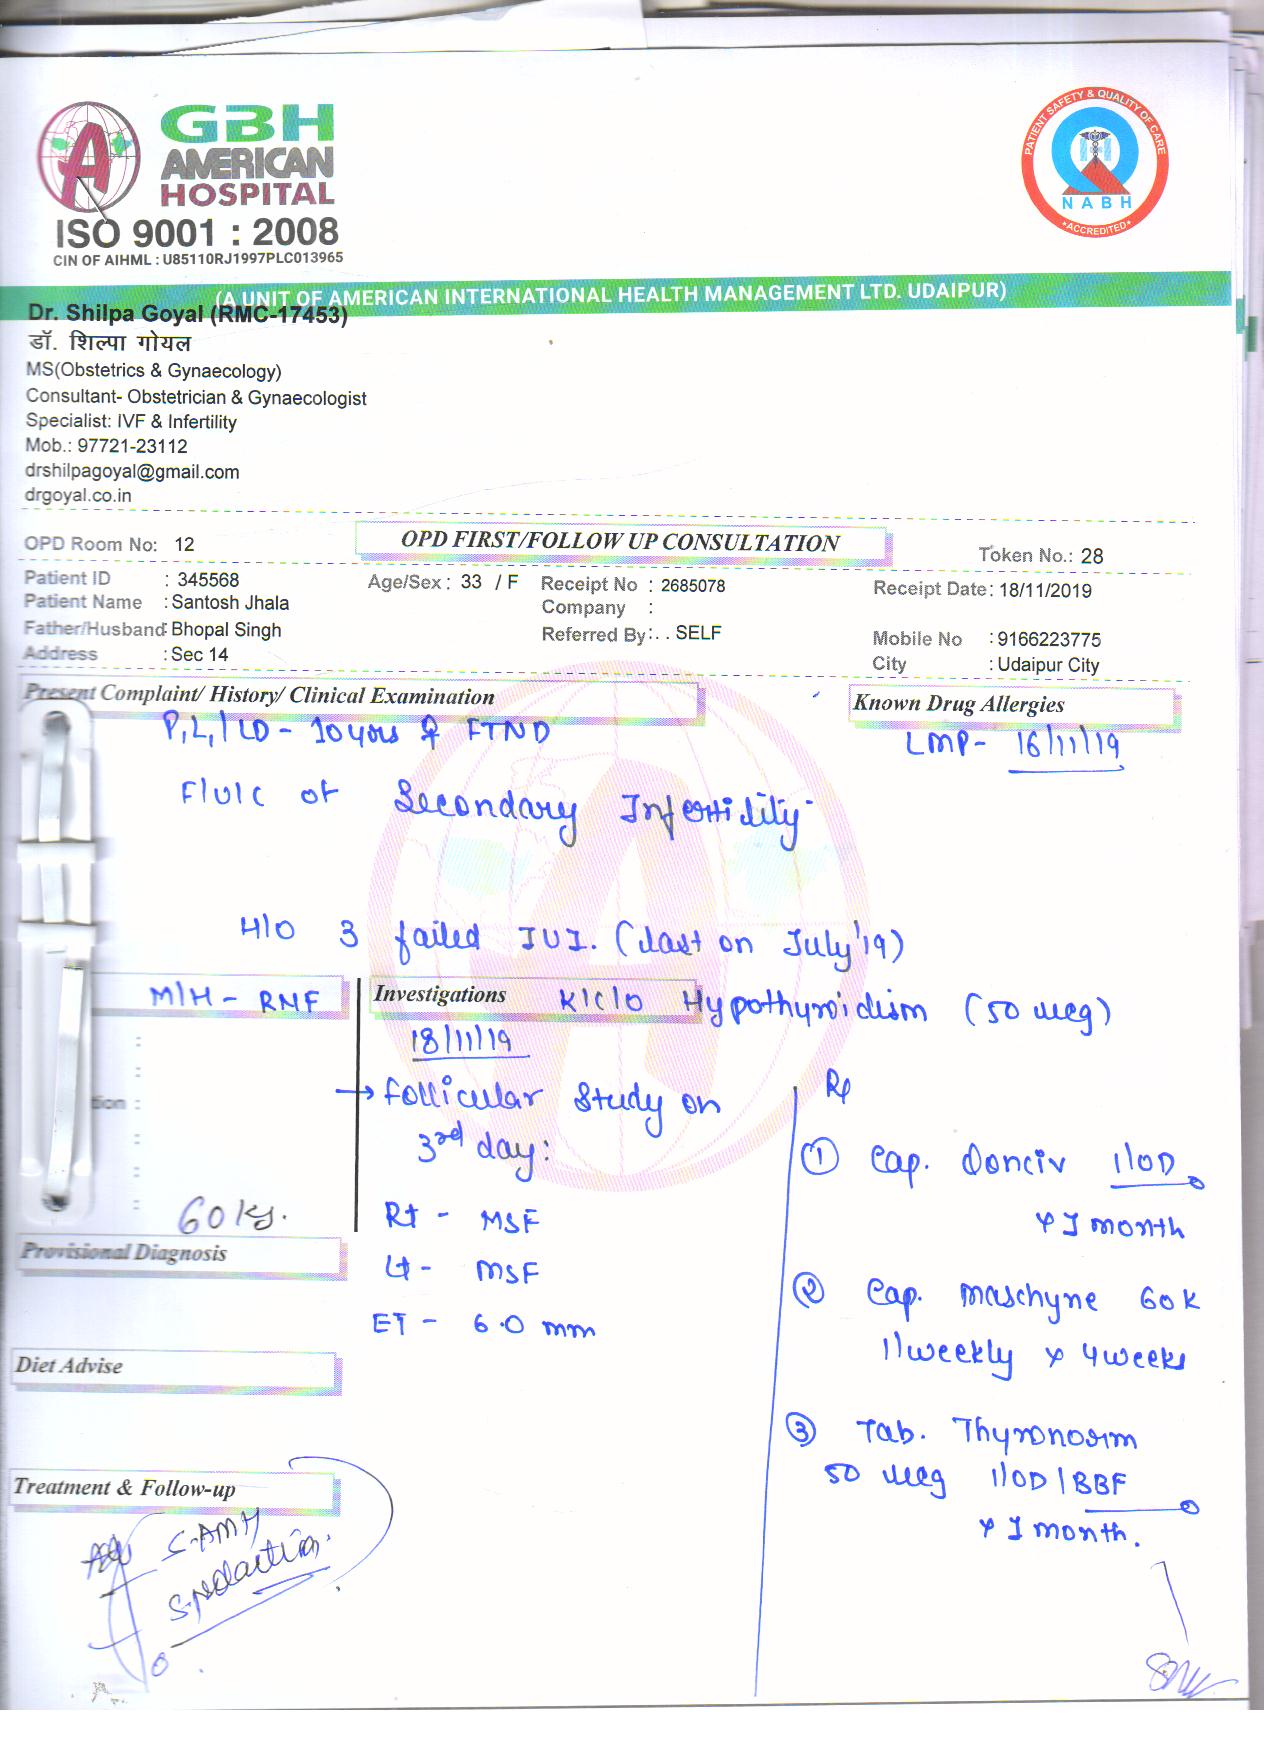 GBH
AMERICAN
HOSPITAL
ISO 9001 : 2008
CIN OF AIHML : U85110RJ1997PLC013965
PATIENT SAFETY & QUALITY OF CARE
NABH
ACCREDITED
(A UNIT OF AMERICAN INTERNATIONAL HEALTH MANAGEMENT LTD. UDAIPUR)
Dr. Shilpa Goyal (RMC-17453)
डॉ. शिल्पा गोयल
MS(Obstetrics & Gynaecology)
Consultant- Obstetrician & Gynaecologist
Specialist: IVF & Infertility
Mob.: 97721-23112
drshilpagoyal@gmail.com
drgoyal.co.in
OPD Room No: 12 OPD FIRST/FOLLOW UP CONSULTATION Token No.: 28
Patient ID : 345568 Age/Sex : 33 / F Receipt No : 2685078 Receipt Date : 18/11/2019
Patient Name : Santosh Jhala Company :
Father/Husband : Bhopal Singh Referred By : . . SELF Mobile No : 9166223775
Address : Sec 14 City : Udaipur City
Present Complaint/ History/ Clinical Examination Known Drug Allergies
P1L1 / LD - 10 yrs ♀ FTND LMP - 16/11/19
F/U/C of Secondary Infertility
H/O 3 failed IUI. (last on July'19)
M/H - RNF Investigations K/C/O Hypothyroidism (50 mcg)
18/11/19
→ Follicular Study on
3rd day:
Rt - MSF
Lt - MSF
ET - 6.0 mm
60 kg.
Provisional Diagnosis
Diet Advise
Treatment & Follow-up
Adv S. AMH
S. prolactin
Rx
① Cap. Donciv 1/OD
x 1 month
② Cap. Maschyne 60K
1/weekly x 4 weeks
③ Tab. Thyronorm
50 mcg 1/OD/BBF
x 1 month.